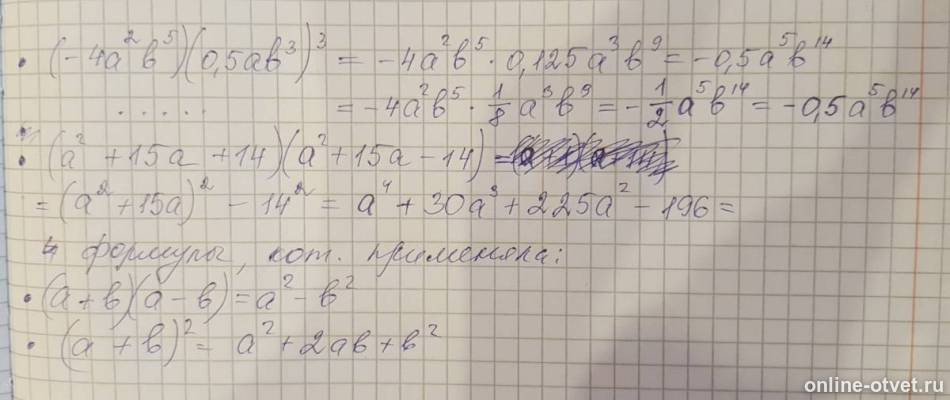 • (-4a²b⁵)(0,5ab³)³ = -4a²b⁵ · 0,125a³b⁹ = -0,5a⁵b¹⁴
. . . . . = -4a²b⁵ · 1/8 a³b⁹ = -1/2 a⁵b¹⁴ = -0,5a⁵b¹⁴
• (a² + 15a + 14)(a² + 15a - 14) =
= (a² + 15a)² - 14² = a⁴ + 30a³ + 225a² - 196 =
формулы, кот. применяла:
• (a + b)(a - b) = a² - b²
• (a + b)² = a² + 2ab + b²
online-otvet.ru